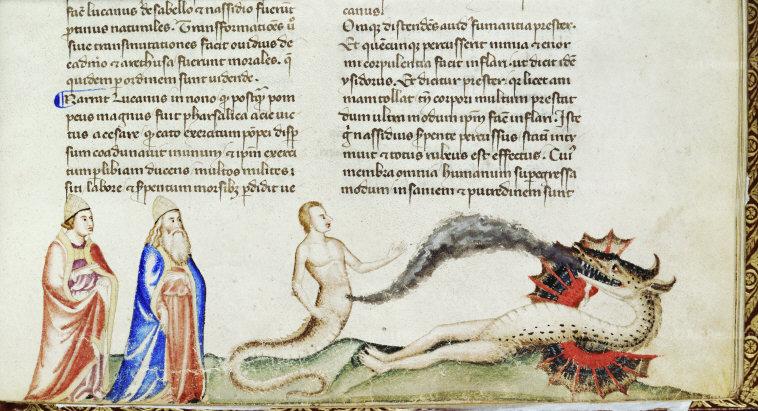 fac̄ Lucanus de sabello & nassidio fuerūt
ꝓtinus naturales. Transformationes ū
siue transmutationes facit ouidius de
cadmo & arethusa fuerunt morales. q̄
quidem ꝑ ordinem sunt uidende.
Narrat Lucanus in nono ꝙ postq̄ꝫ pom
peus magnus fuit pharsalica acie uic
tus a cesare. ꝙ cato exercitum pōpei disꝑ
sum coadunauit in unum & ip̄m exerci
tum ꝑ libiam ducens. multos milites i
siti labore & sꝑentum morsibꝫ ꝑdidit ue
canus.
Oraqꝫ distendens fumantia prester.
Et quēcunque percusserit nimia & enor
mi corpulentia facit inflari. ut dicit idē
ysidorus. Et dicitur prester. ꝙ licet ani
mam tollat tn̄ corpori multum prestat
dum ultra modum ip̄m fac̄ inflari. Iste
g̊ nassidius sꝑente percussus statim intu
muit & totus rubeus est effectus. Cuiꝰ
membra omnia humanum supergressa
modum insaniem & putredinem sunt